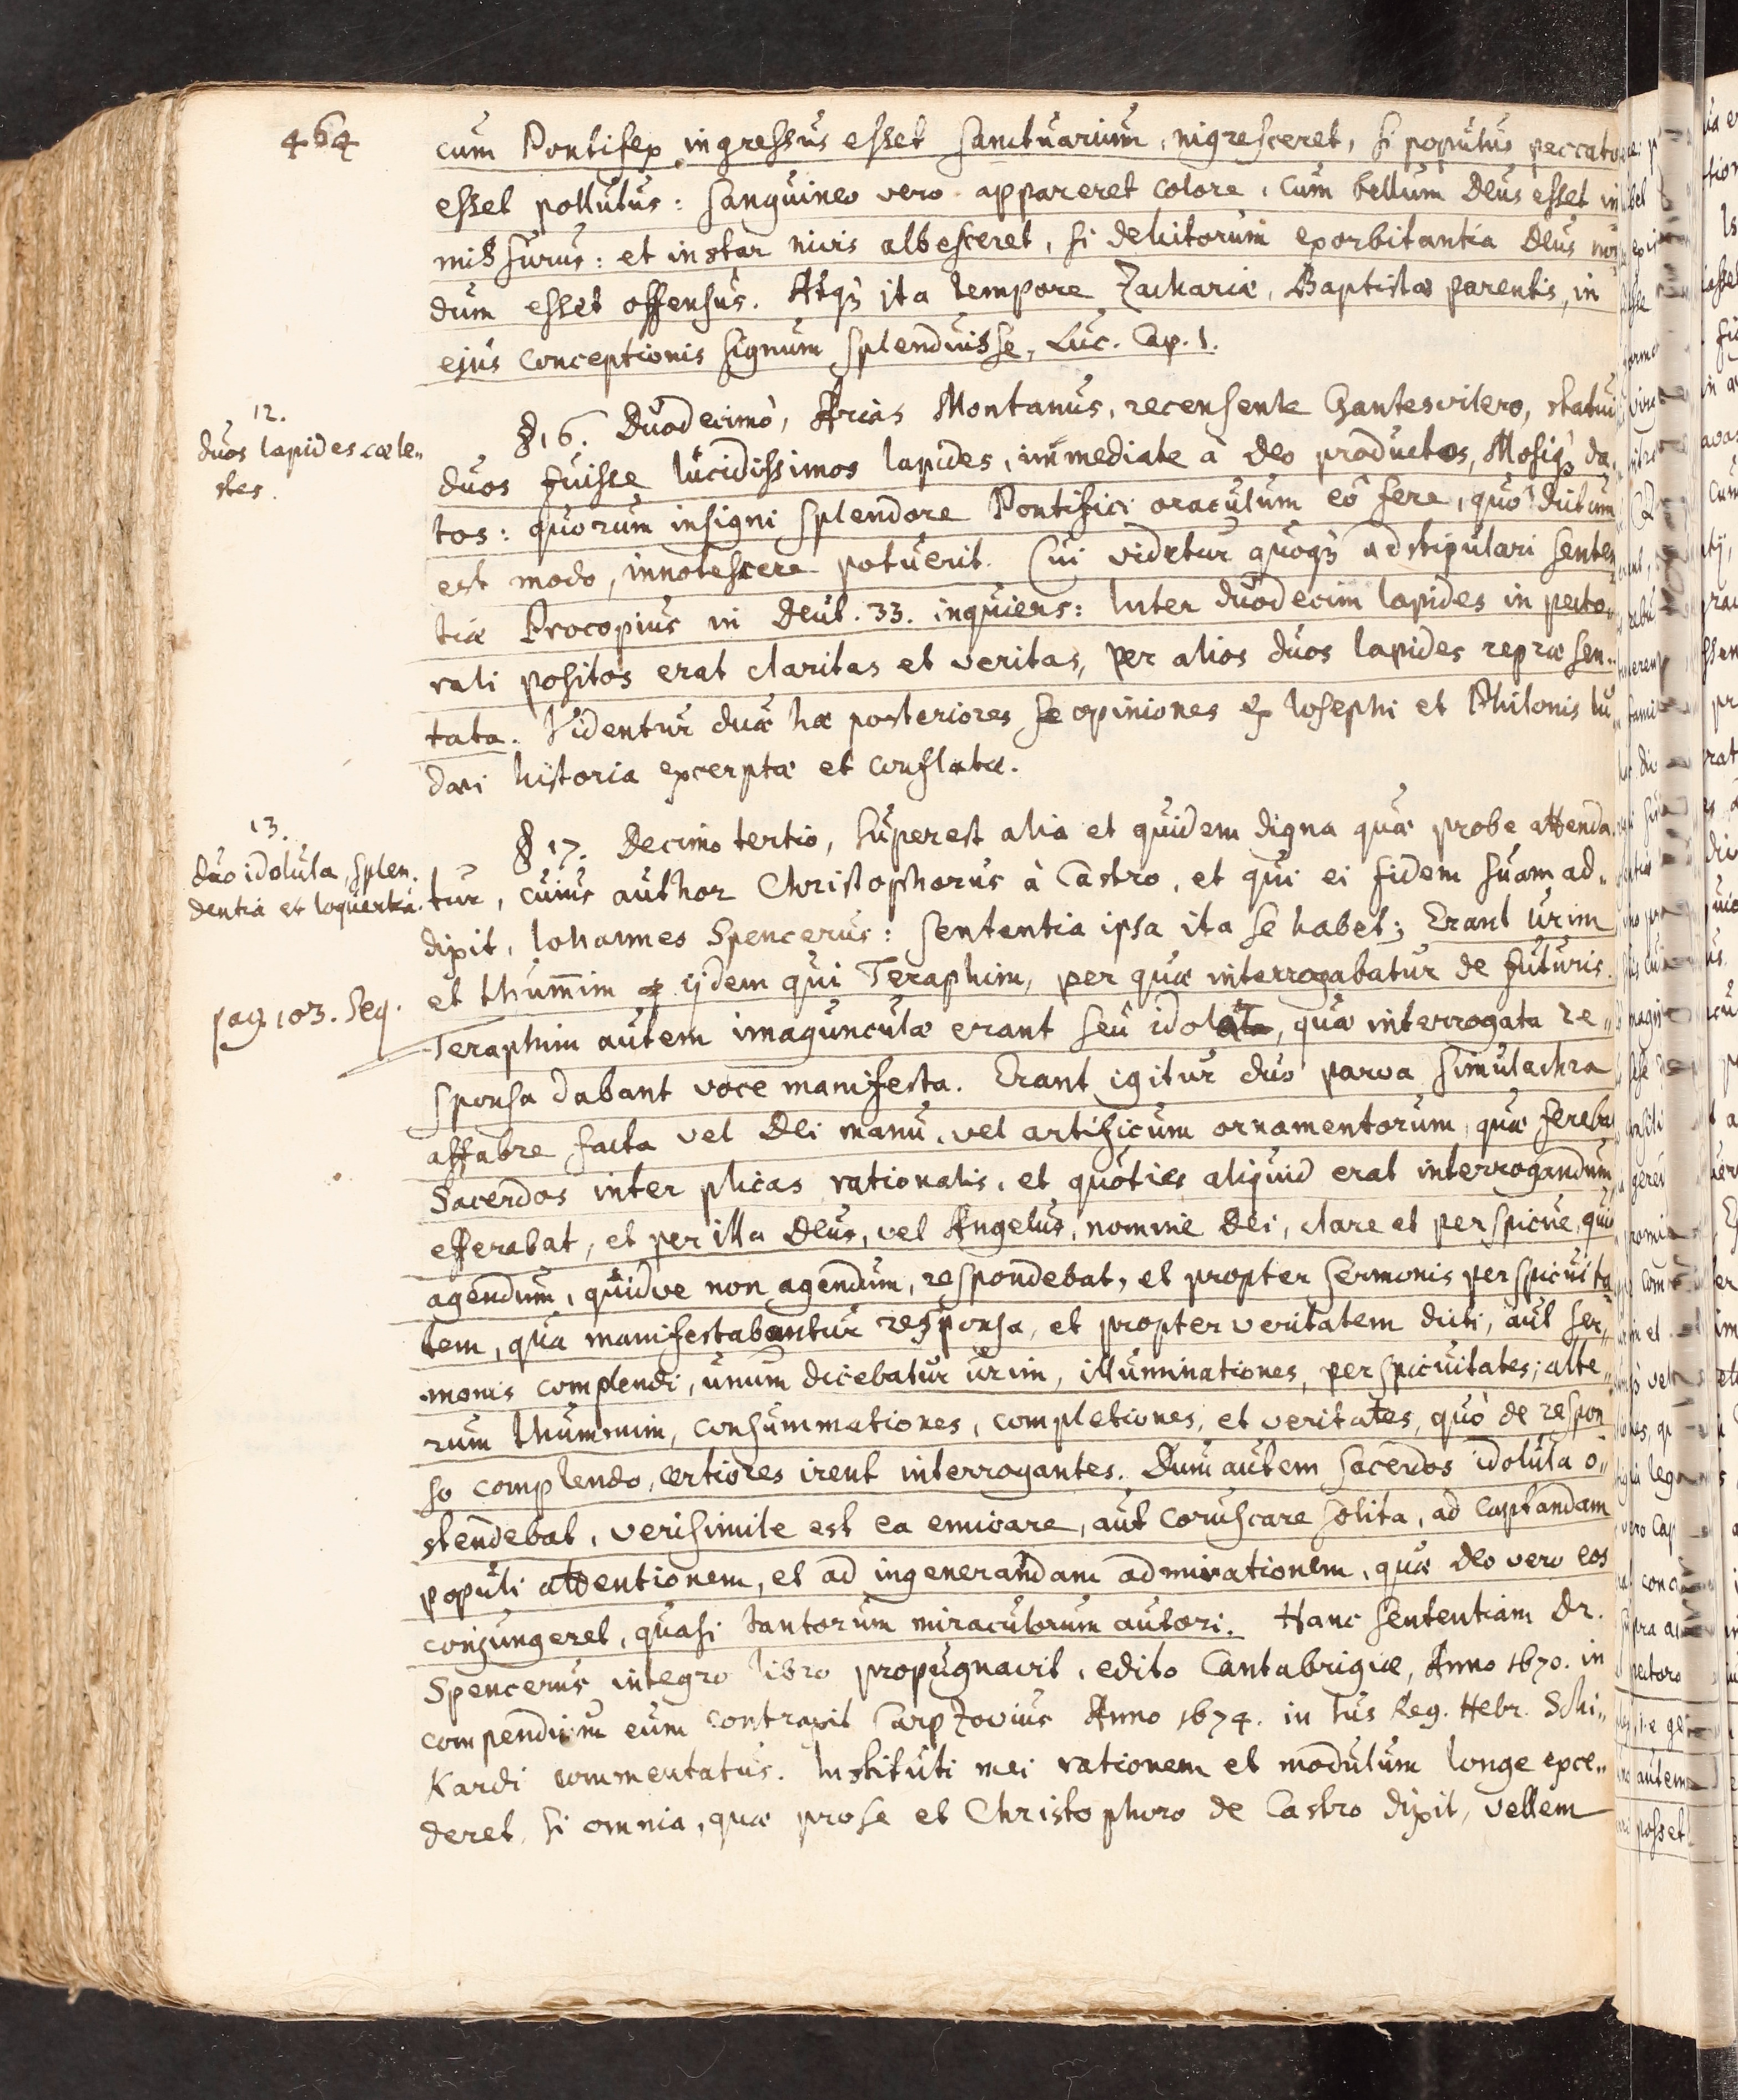 464
cum Pontifex ingressus esset sanctuarium, nigresceret, si populus peccato
esset pollutus: sanguineo vero appareret colore, cum bellum Deus esset im
missurus: et instar nivis albesceret, si delictorum exorbitantia Deus non
dum esset offensus. Atqꝫ ita tempore Zachariæ, Baptistæ parentis, in
ejus conceptionis signum splenduisse, Luc. Cap. 1.
12.
duos lapides cœle„
stes.
§ 16. Duodecimò, Arias Montanus, recensente Chantesvilero, statuit
duos fuisse lucidissimos lapides, immediate à Deo productos, Mosiqꝫ da„
tos: quorum insigni splendore Pontifici oraculum eô fere, quô dictum
est modo, innotescere potuerit. Cui videtur quoqꝫ adstipulari senten
tiæ Procopius in Deut. 33. inquiens: Inter duodecim lapides in pecto„
rali positos erat claritas et veritas, per alios duos lapides repræsen„
tata. Videntur duæ hæ posteriores se opiniones ex Josephi et Philonis lu
dari historia excerptæ et conflatæ.
13.
duo idolula, splen„
dentia et loquentia.
§ 17. Decimo tertio, superest alia et quidem digna quæ probe attenda„
tur, cuius author Christophorus à Castro, et qui ei fidem suam ad„
dixit, Iohannes Spencerus: sententia ipsa ita se habet; Erant Urim
pag. 103. seq.
et thum̄im ijdem qui Teraphim, per quæ interrogabatur de futuris.
Teraphim autem imagunculæ erant seu idola, quæ interrogata re„
sponsa dabant voce manifesta. Erant igitur duo parva simulachra
affabre facta vel Dei manu, vel artificum ornamentorum, quæ fereba
Sacerdos inter plicas rationalis, et quoties aliquid erat interrogandum,
efferebat, et per illa Deus, vel Angelus, nomine Dei, clare et perspicue, quid
agendum, quidve non agendum, respondebat, et propter sermonis perspicuita
tem, quâ manifestabantur responsa, et propter veritatem dicti, aut ser„
monis complendi, unum dicebatur urim, illuminationes, perspicuitates; alte„
rum thummim, consummationes, completiones, et veritates, quò de respon
so complendo, certiores irent interrogantes. Dum autem sacerdos idolula o„
stendebat, verisimile est ea emicare, aut coruscare solita, ad captandam
populi attentionem, et ad ingenerandam admirationem, quæ Deo vero eos
conjungeret, quasi tantorum miraculorum autori. Hanc sententiam Dr.
Spencerus integro libro propugnavit, edito Cantabrigiæ, Anno 1670. in
compendium eum contraxit Carpzovius Anno 1674. in Ius Reg. Hebr. Schi„
kardi commentatus. Instituti mei rationem et modulum longe exce„
deret, si omnia, quæ pro se et Christophoro de Castro dixit, vellem